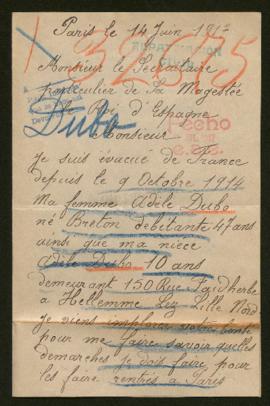 Paris le 14 Juin 1917
32535
REPATRIACION
CIVIL
Monsieur le Secretaire
particulier de Sa Magestée
le Roi d'Espagne
Dubo
Hecho
Monsieur
Je suis évacué de France
depuis le 9 Octobre 1914
Ma femme Adèle Dubo
né Breton debitante 47 ans
ainsi que ma nièce
Adèle Dubo 10 ans
demeurant 150 Rue Faidherbe
a Hellemme Lez Lille Nord
Je viens implorer votre bonté
pour me faire savoir quelles
demarches je dois faire pour
les faire rentrés a Paris